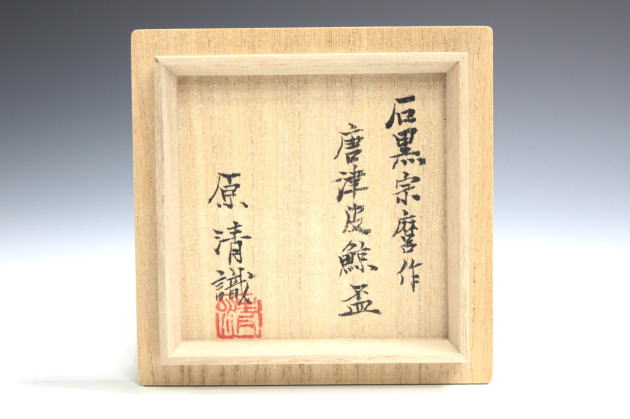 石黒宗麿作
唐津皮鯨盃
原清識
清